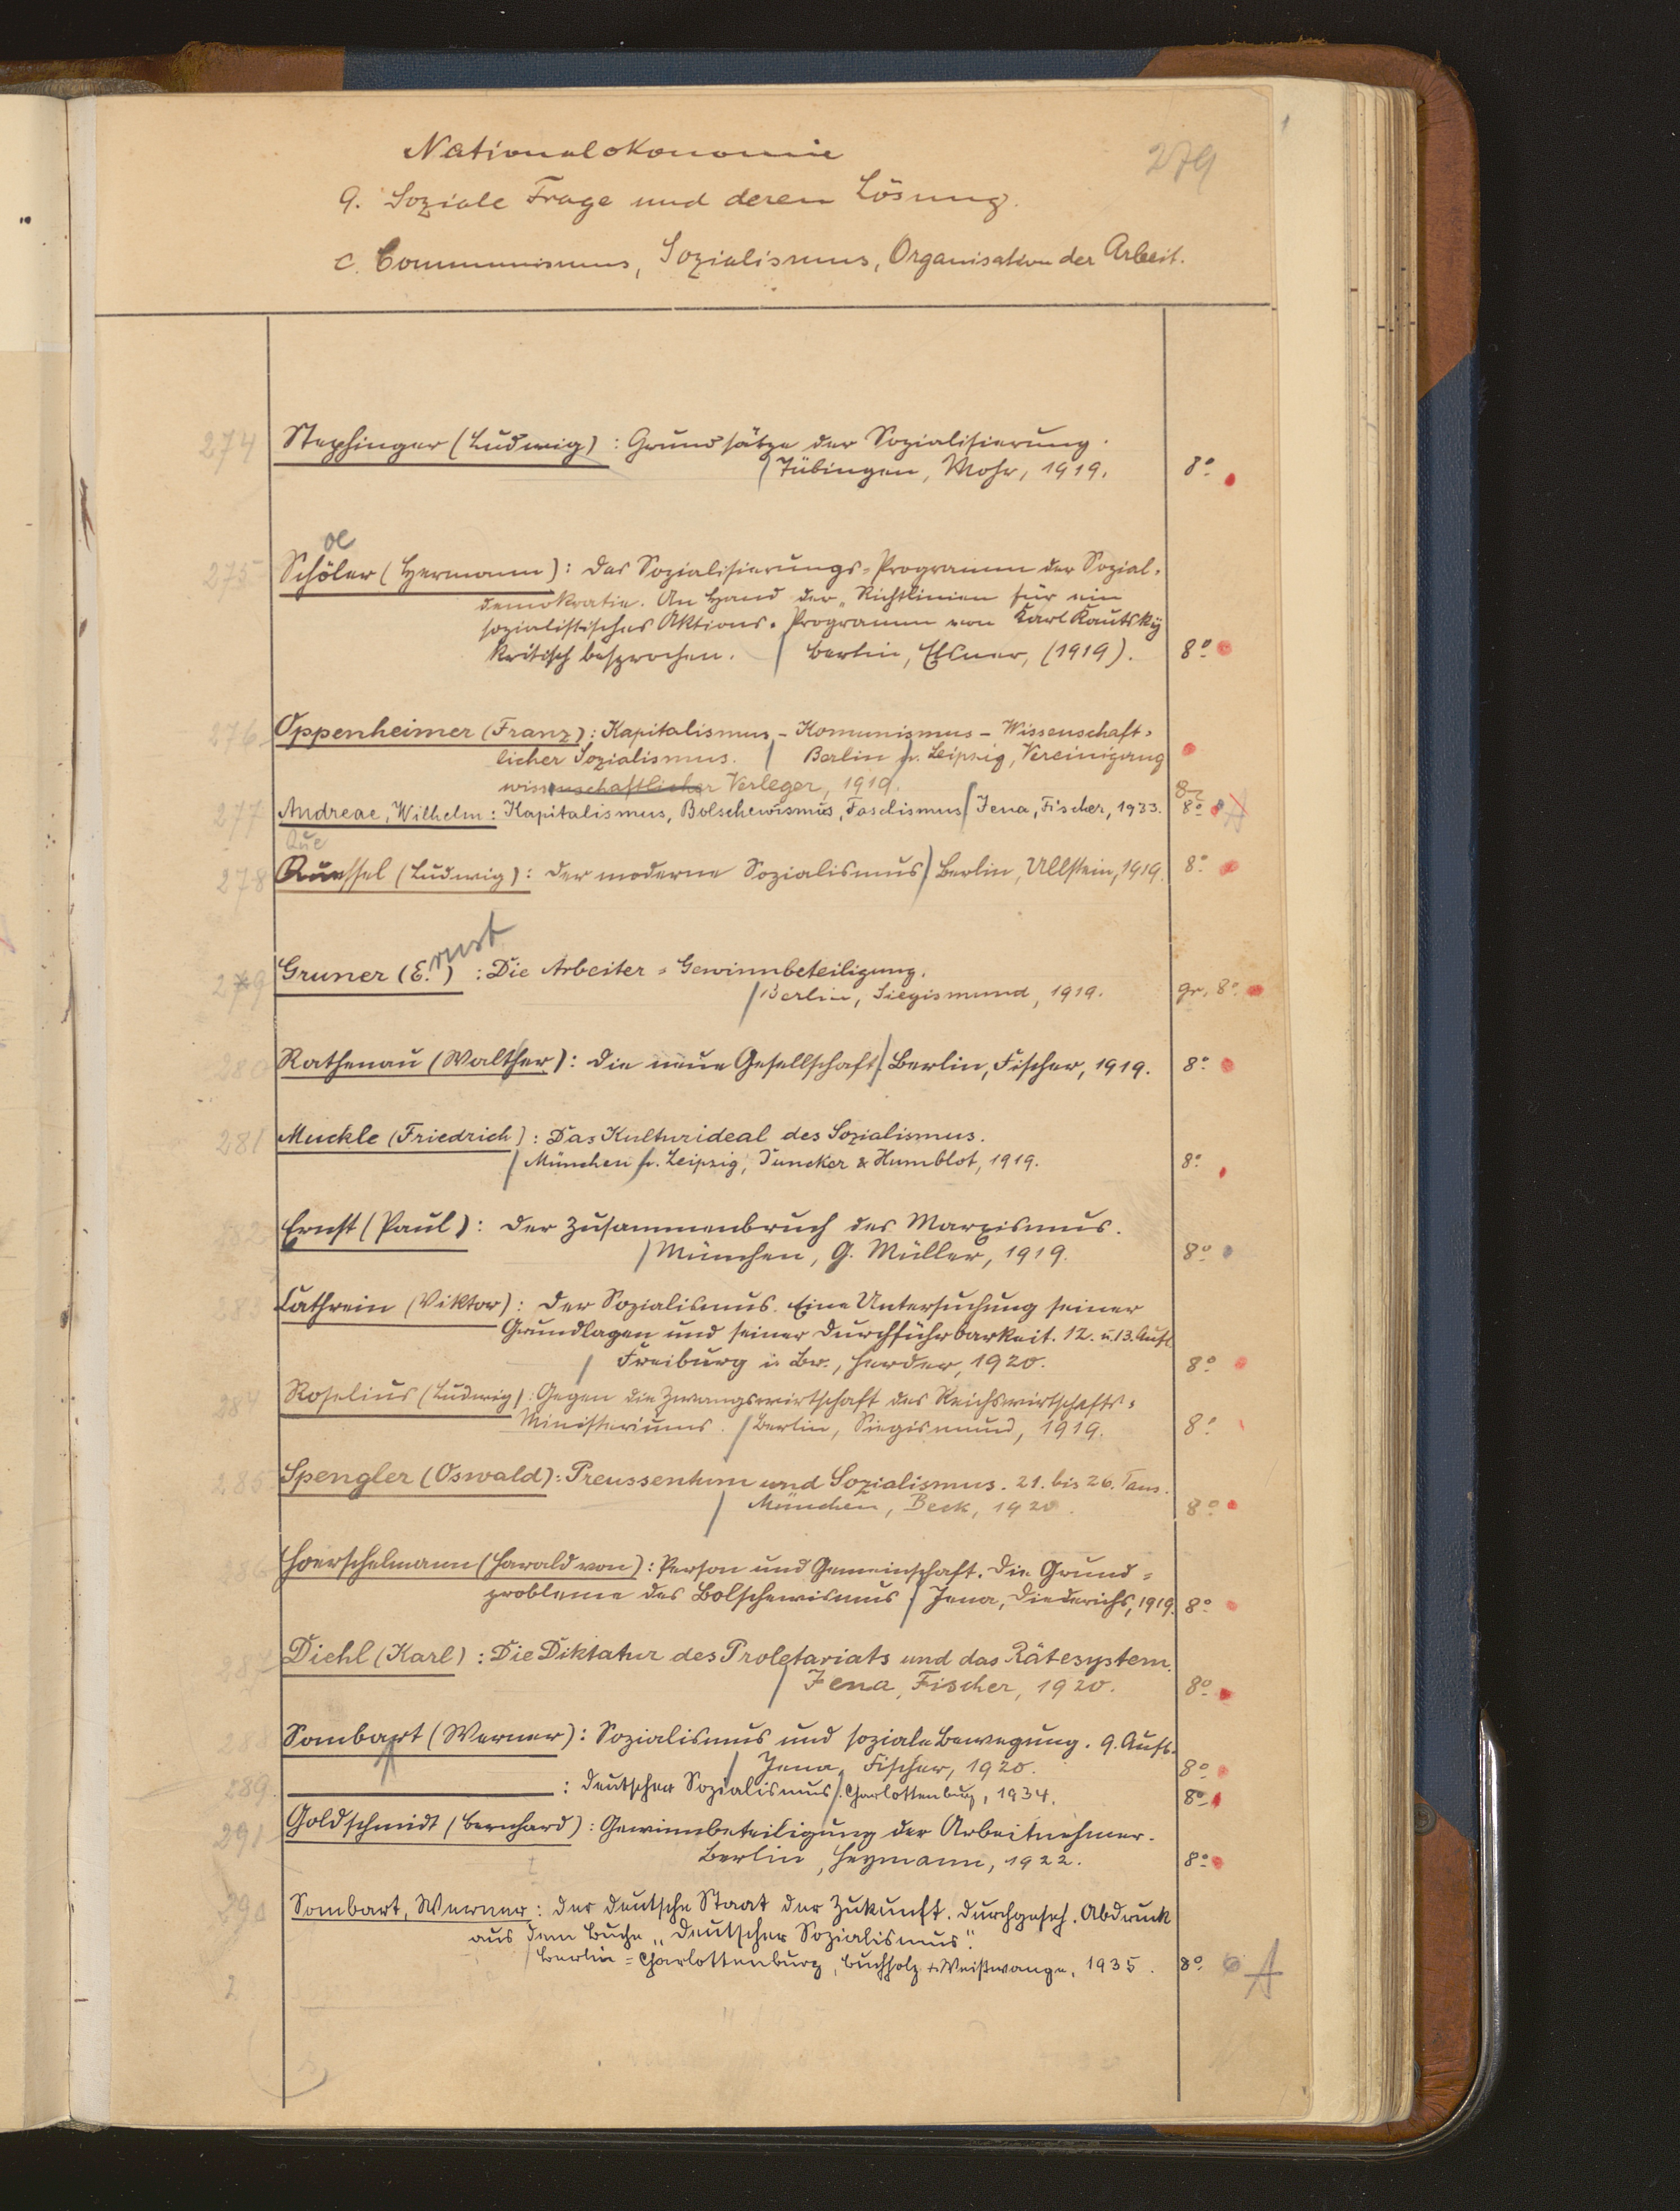 Nationalökonomie
279
9. Soziale Frage und deren Lösung.
c. Communismus, Sozialismus, Organisation der Arbeit.
274 Stephinger (Ludwig) : Grundsätze der Sozialisierung.
/ Tübingen, Mohr, 1919. 8°
oe
275 Schöler (Hermann) : Das Sozialisierungs-Programm der Sozial-
demokratie. An Hand der „Richtlinien für ein
sozialistisches Aktions-Programm von Karl Kautsky
kritisch besprochen. / Berlin, Elsner, (1919). 8°
276 Oppenheimer (Franz) : Kapitalismus - Komunismus - Wissenschaft-
licher Sozialismus. / Berlin u. Leipzig, Vereinigung
wissenschaftlicher Verleger, 1919. 8°
277 Andreae, Wilhelm : Kapitalismus, Bolschewismus, Faschismus / Jena, Fischer, 1933. 8° A
Que
278 Quessel (Ludwig) : Der moderne Sozialismus / Berlin, Ullstein, 1919. 8°
rnst
279 Gruner (E.) : Die Arbeiter-Gewinnbeteiligung.
/ Berlin, Siegismund, 1919. gr. 8°
280 Rathenau (Walther) : Die neue Gesellschaft / Berlin, Fischer, 1919. 8°
281 Muckle (Friedrich) : Das Kulturideal des Sozialismus.
/ München u. Leipzig, Duncker & Humblot, 1919. 8°
282 Ernst (Paul) : Der Zusammenbruch des Marxismus.
/ München, G. Müller, 1919. 8°
283 Cathrein (Viktor) : Der Sozialismus. Eine Untersuchung seiner
Grundlagen und seiner Durchführbarkeit. 12. u. 13. Aufl.
/ Freiburg i. Br., Herder, 1920. 8°
284 Roselius (Ludwig) : Gegen die Zwangswirtschaft des Reichswirtschafts-
Ministeriums. / Berlin, Siegismund, 1919. 8°
285 Spengler (Oswald) : Preussentum und Sozialismus. 21. bis 26. Taus.
/ München, Beck, 1920. 8°
286 Hoerschelmann (Harald von) : Person und Gemeinschaft. Die Grund-
probleme des Bolschewismus / Jena, Diederichs, 1919. 8°
287 Diehl (Karl) : Die Diktatur des Proletariats und das Rätesystem.
/ Jena, Fischer, 1920. 8°
288 Sombart (Werner) : Sozialismus und soziale Bewegung. 9. Aufl.
/ Jena, Fischer, 1920. 8°
289. : Deutscher Sozialismus / Charlottenburg, 1934. 8°
291 Goldschmidt (Bernhard) : Gewinnbeteiligung der Arbeitnehmer.
Berlin, Heymann, 1922. 8°
290 Sombart, Werner : Der deutsche Staat der Zukunft. Durchgeseh. Abdruck
aus dem Buche „Deutscher Sozialismus".
/ Berlin-Charlottenburg, Buchholz & Weißwange, 1935. 8° A
2